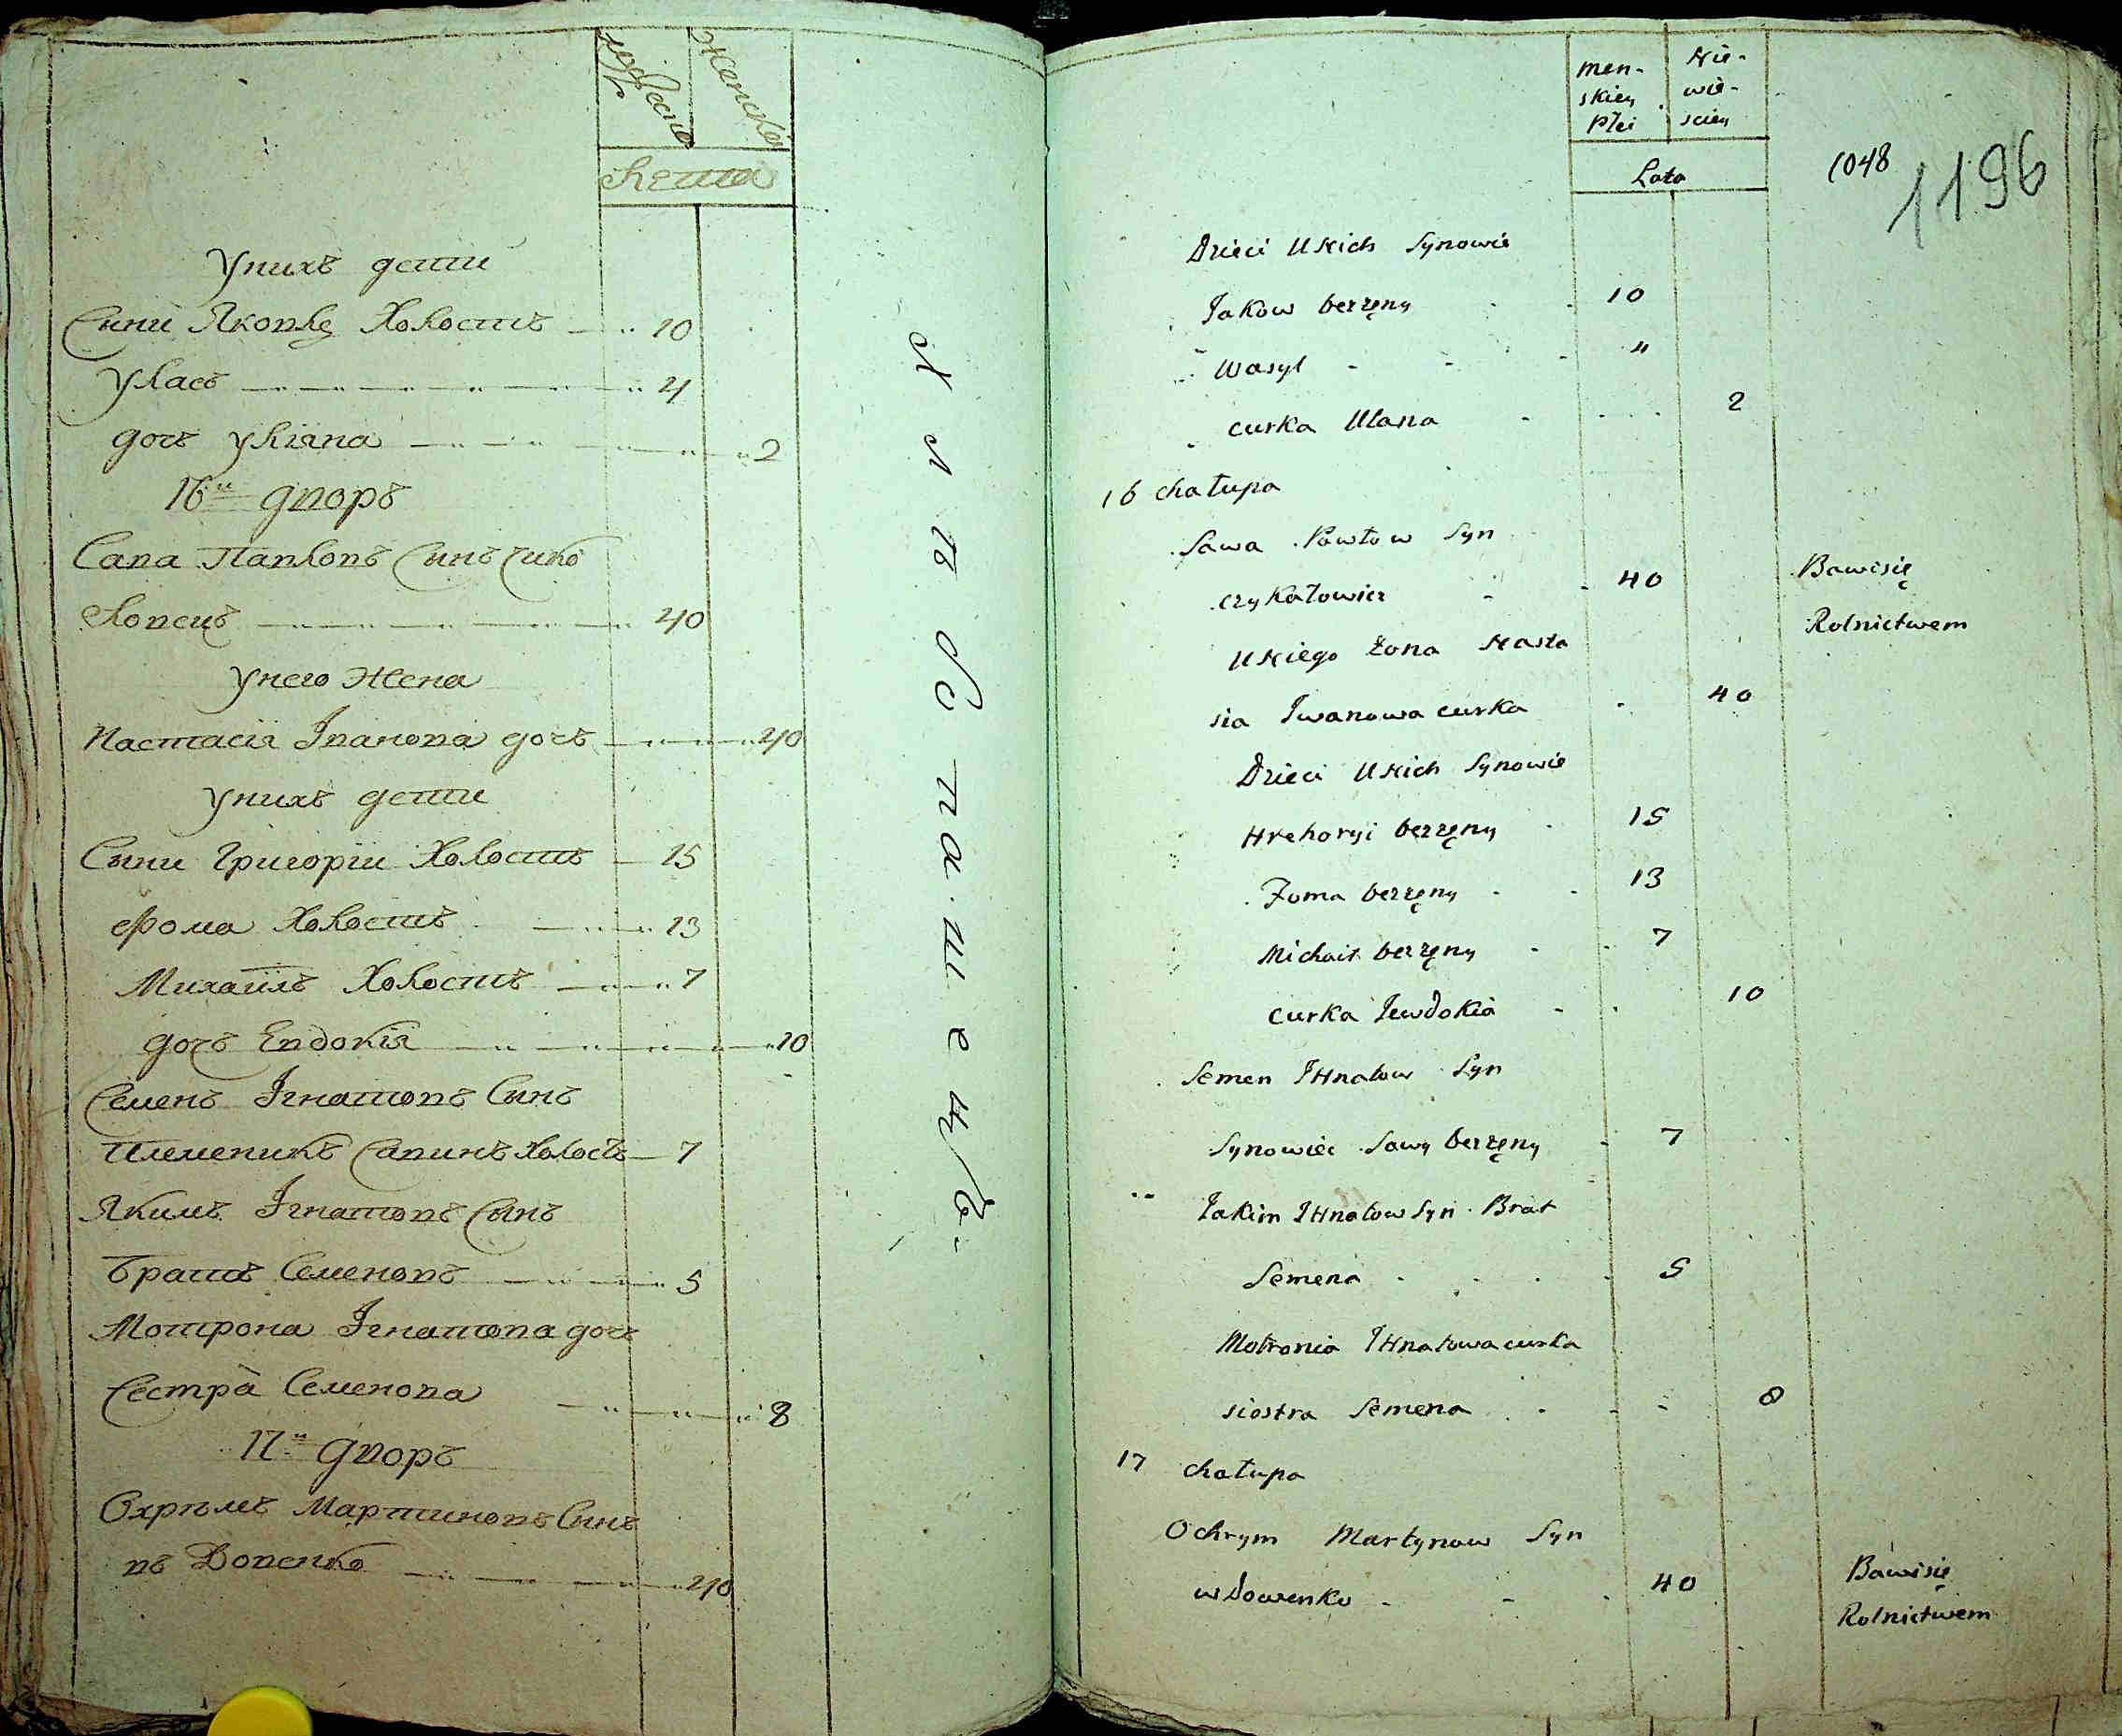 мужеска
женска
Лета
У них дети
Сини Яковъ Холостъ 10
Уласъ 4
дочь Улiяна 2
16й дворъ
Сава Павловъ Синъ Чико
ловецъ 40
У него Жена
Настасiя Iванова дочь 40
У них дети
Сыни Григорiи Холостъ 15
Фома Холостъ 13
Михаилъ Холостъ 7
дочь Евдокiя 10
Семенъ Iгнатовъ Синъ
племеникъ Савинъ Холостъ 7
Якимъ Iгнатовъ Сынъ
братъ Семеновъ 5
Мотрона Iгнатова дочь
Сестра Семенова 8
17й дворъ
Охрѣмъ Мартиновъ Синъ
въ Довенко 40
men-
skiey
Płci
Nie-
wie-
sciey
Lata
1048
1196
Dzieci U Nich Synowie
Jakow bezżęny 10
Wasyl 4
curka Ulana 2
16 chałupa
Sawa Pawłow Syn
czykałowicz 40 Bawi się
Rolnictwem
U Niego żona Nasta
sia Iwanowa curka 40
Dzieci U Nich Synowie
Hrehoryi bezżęny 15
Foma bezżęny 13
Michaił bezżęny 7
curka Jewdokia 10
Semen IHnatow Syn
Synowiec Sawy bezżęny 7
Jakim IHnatow Syn Brat
Semena 5
Motronia IHnatowa curka
siostra Semena 8
17 chałupa
Ochrym Martynow Syn
wdowenko 40 Bawi się
Rolnictwem